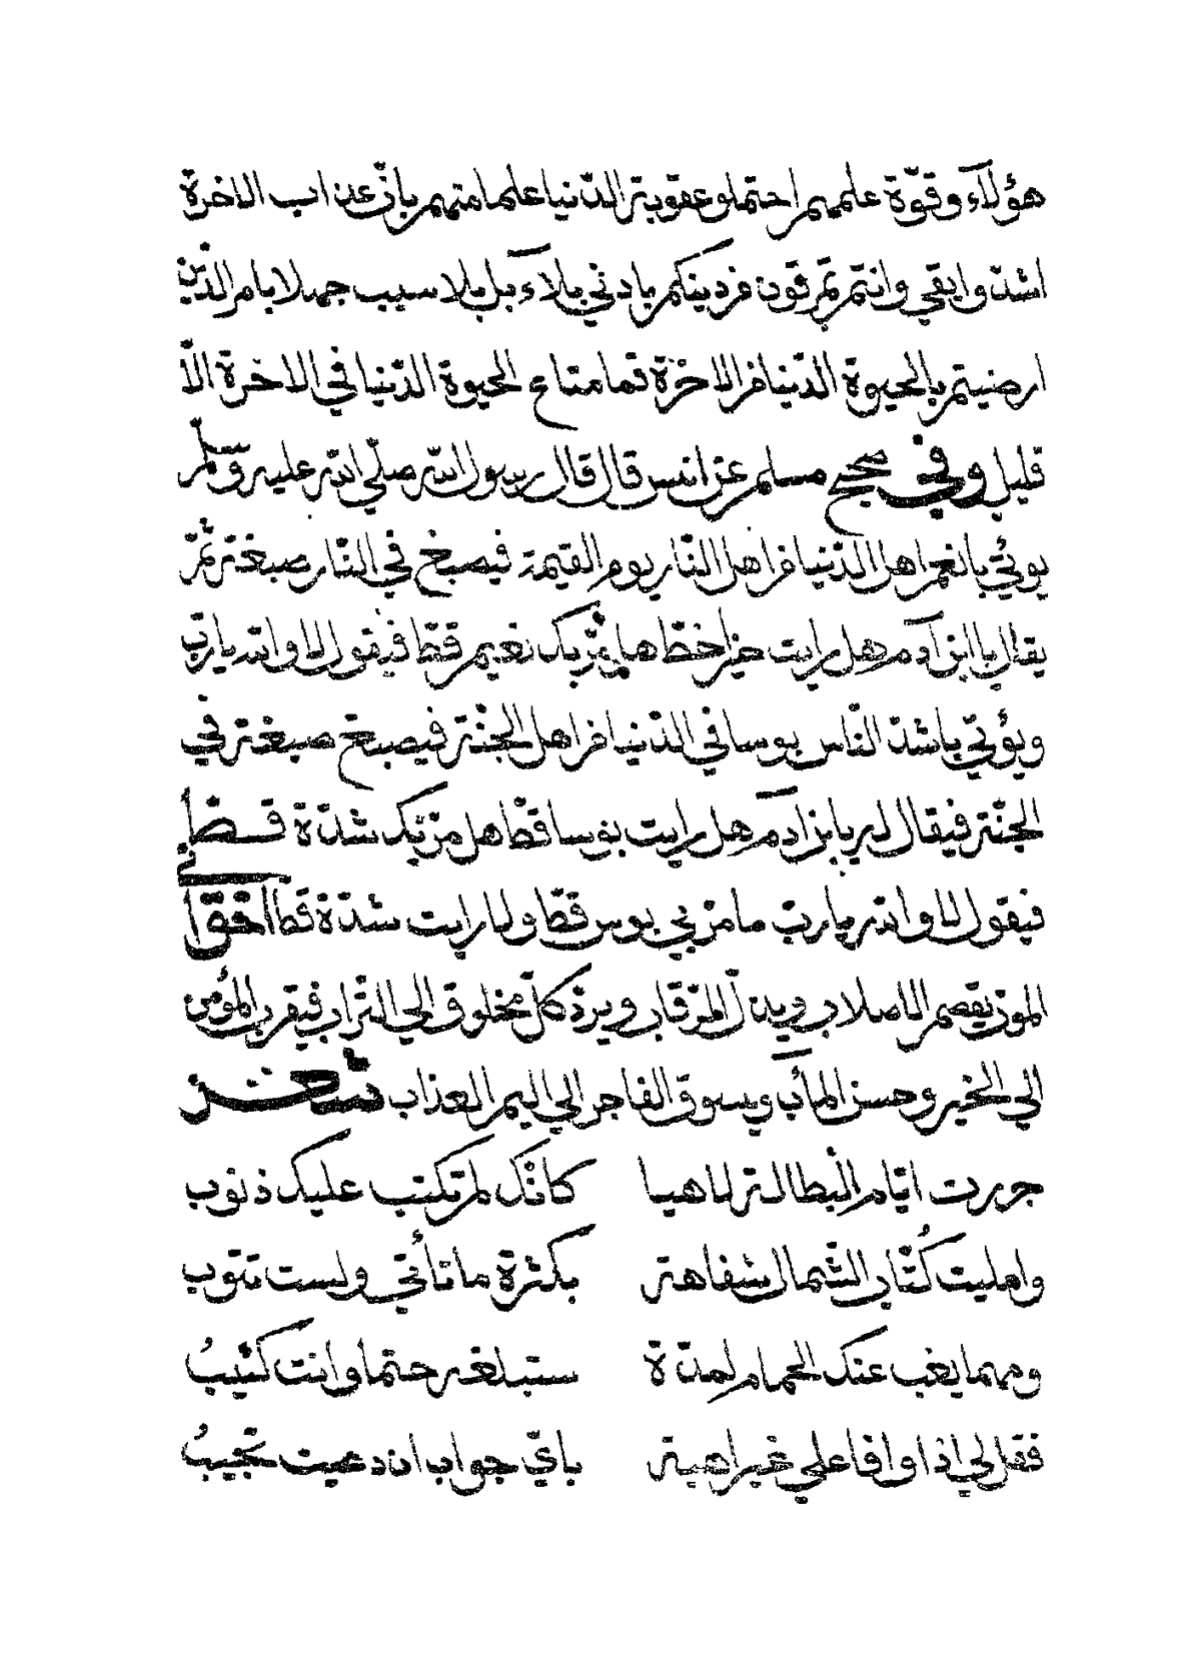 هؤلآء وقوّة علمهم احتملو عقوبة الدّنيا علما منهم بانّ عذاب الاخرة
اشدّ وابقي وانتم تمرقون من دينكم بادني بلآء بل بلا سبب جهلا بامر الدّين
ارضيتم بالحيوة الدّنيا من الاخرة فما متاع الحيوة الدّنيا في الاخرة الّا
قليل وفي صحيح مسلم عن انس قال قال رسول الله صلّي الله عليه وسلّم
يوتي بانعم اهل الدّنيا من اهل النّار يوم القيمة فيصبغ في النّار صبغة ثمّ
يقال يا ابن آدم هل رايت خيرا خطّ هل مرّ بك نعيم قطّ فيقول لا والله يا ربّ
ويؤتي باشدّ النّاس بوسا في الدّنيا من اهل الجنّة فيصبغ صبغة في
الجنّة فيقال له يا بن آدم هل رايت بوسا قطّ هل مرّ بك شدّة قطّ
فيقول لا والله يا ربّ ما مرّ بي بوس قطّ ولا رايت شدّة قطّ اخوّاني
الموت يقصم الاصلاب ويذلّ الرّقاب ويردّ كلّ مخلوق الي التّراب فيقرب المؤمن
الي الخير وحسن المآب ويسوق الفاجر الي اليم العذاب شعر
جررت ايّام البطالة لاهيا كانّك لم تكتب عليك ذنوب
وامليت كُتّاب الشّمال سفاهة بكثرة ما تأتي ولست تتوب
ومهما يغب عنك الحمام لمدّة ستبلغه حتما وانت كئيبُ
فقل لي اذا وافا علي غير اهبة بايّ جواب ان دعيت تجيبُ